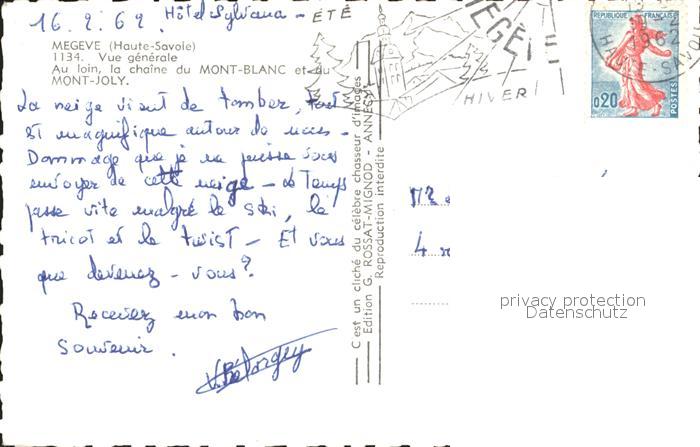 16.2.62. Hôtel Sylvana -
ÉTÉ
MEGÈVE
HIVER
RÉPUBLIQUE FRANÇAISE
0,20
POSTES
1962
HAUTE-SAVOIE
MEGEVE (Haute-Savoie)
1134. Vue générale
Au loin, la chaîne du MONT-BLANC et du
MONT-JOLY.
La neige vient de tomber, tout
est magnifique autour de nous -
Dommage que je ne puisse vous
envoyer de cette neige - Le Temps
passe vite malgré le ski, le
tricot et le twist - Et vous
que devenez - vous?
Recevez mon bon
souvenir.
C'est un cliché du célèbre chasseur d'images
Edition G. ROSSAT-MIGNOD - ANNECY
Reproduction interdite
4
privacy protection
Datenschutz